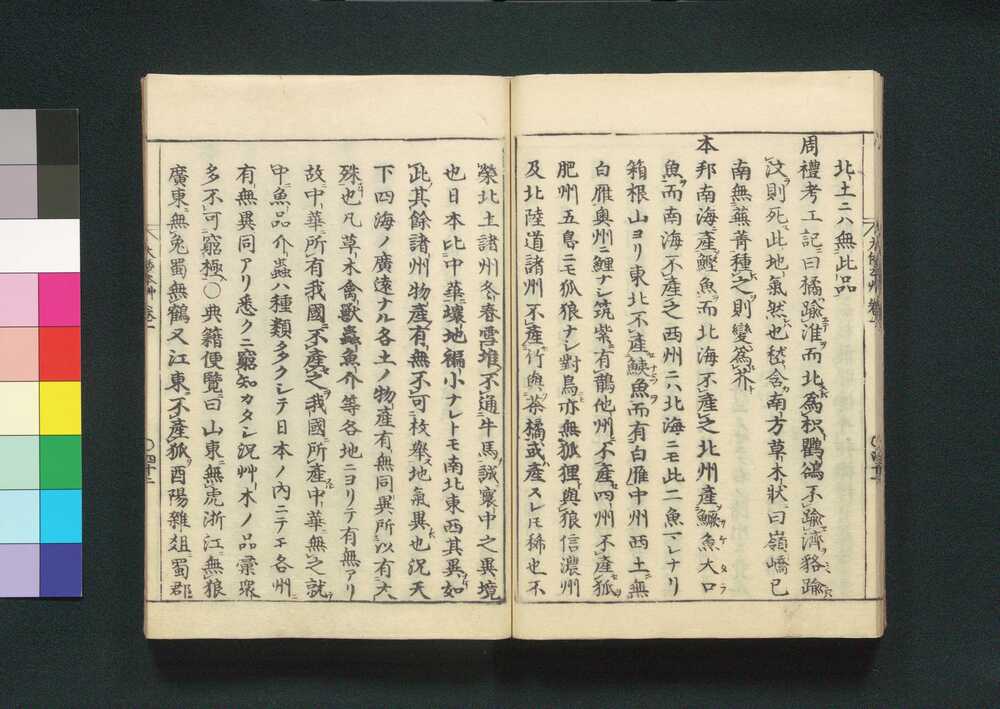 北土ニハ無此品
周禮考工記曰橘踰淮而北為枳鸜鵒不踰濟貉踰
汶則死此地氣然也嵇含南方草木狀曰嶺嶠已
南無蕪菁種之則變為芥
本邦南海產鰹魚而北海不產之北州產鱖魚大口
魚而南海不產之西州ニハ北海ニモ此二魚マレナリ
箱根山ヨリ東北不產鯸魚而有白雁中州西土無
白雁奥州ニ鯉ナシ筑紫有鵲他州不產四州不產狐
肥州五島ニモ狐狼ナシ對馬亦無狐狸與狼信濃州
及北陸道諸州不產竹與茶橘或產スレ𪜈稀也不
榮北土諸州冬春雪堆不通牛馬誠寰中之異境
也日本比中華壤地褊小ナレトモ南北東西其異如
此其餘諸州物產有無不可枚舉地氣異也況天
下四海ノ廣遠ナル各土ノ物產有無同異所以有大
殊也凡草木禽獸蟲魚介等各地ニヨリテ有無アリ
故中華所有我國不產之我國所產中華無之就
中魚品介蟲ハ種類多クシテ日本ノ内ニテモ各州
有無異同アリ悉クニ窮知カタシ況艸木ノ品彙衆
多不可窮極〇典籍便覽曰山東無虎浙江無狼
廣東無兔蜀無鶴又江東不產狐酉陽雜俎蜀郡
大和本艸卷一
〇四十二